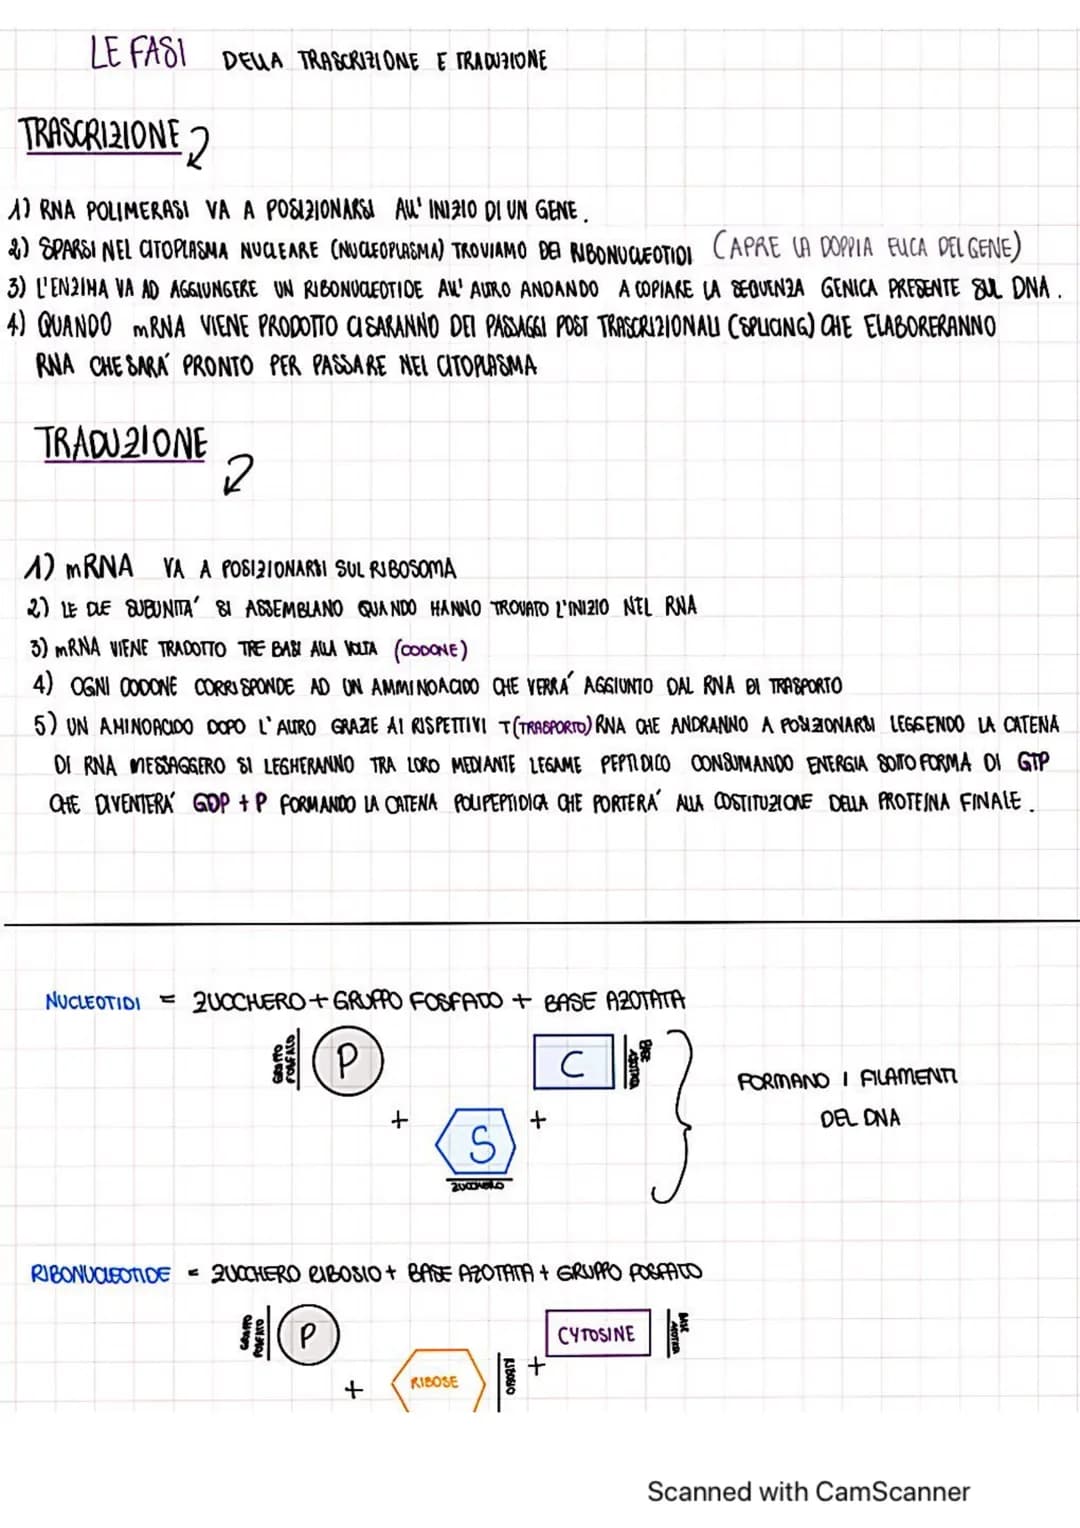 LE FASI DELLA TRASCRIZIONE E TRADUZIONE
TRASCRIZIONE
1) RNA POLIMERASI VA A POSIZIONARSI ALL' INIZIO DI UN GENE.
2) SPARSI NEL CITOPLASMA NUCLEARE (NUCLEOPLASMA) TROVIAMO DEI RIBONUCLEOTIDI (APRE LA DOPPIA ELICA DEL GENE)
3) L'ENZIMA VA AD AGGIUNGERE UN RIBONUCLEOTIDE ALL' ALTRO ANDANDO A COPIARE LA SEQUENZA GENICA PRESENTE SUL DNA.
4) QUANDO mRNA VIENE PRODOTTO CI SARANNO DEI PASSAGGI POST TRASCRIZIONALI (SPLICING) CHE ELABORERANNO
RNA CHE SARA' PRONTO PER PASSARE NEL CITOPLASMA
TRADUZIONE
1) mRNA VA A POSIZIONARSI SUL RIBOSOMA
2) LE DUE SUBUNITA' SI ASSEMBLANO QUANDO HANNO TROVATO L'INIZIO NEL RNA
3) mRNA VIENE TRADOTTO TRE BASI ALLA VOLTA (CODONE)
4) OGNI CODONE CORRISPONDE AD UN AMMINOACIDO CHE VERRA' AGGIUNTO DAL RNA DI TRASPORTO
5) UN AMINOACIDO DOPO L'ALTRO GRAZIE AI RISPETTIVI T(TRASPORTO) RNA CHE ANDRANNO A POSIZIONARSI LEGGENDO LA CATENA
DI RNA MESSAGGERO SI LEGHERANNO TRA LORO MEDIANTE LEGAME PEPTIDICO CONSUMANDO ENERGIA SOTTO FORMA DI GTP
CHE DIVENTERA' GDP + P FORMANDO LA CATENA POLIPEPTIDICA CHE PORTERA' ALLA COSTITUZIONE DELLA PROTEINA FINALE.
NUCLEOTIDI = ZUCCHERO + GRUPPO FOSFATO + BASE AZOTATA
GRUPPO FOSFATO
P
C
BASE AZOTATA
+
S
+
ZUCCHERO
FORMANO I FILAMENTI
DEL DNA
RIBONUCLEOTIDE = ZUCCHERO RIBOSIO + BASE AZOTATA + GRUPPO FOSFATO
GRUPPO FOSFATO
P
CYTOSINE
BASE AZOTATA
+
RIBOSE
RIBOSIO
+
Scanned with CamScanner